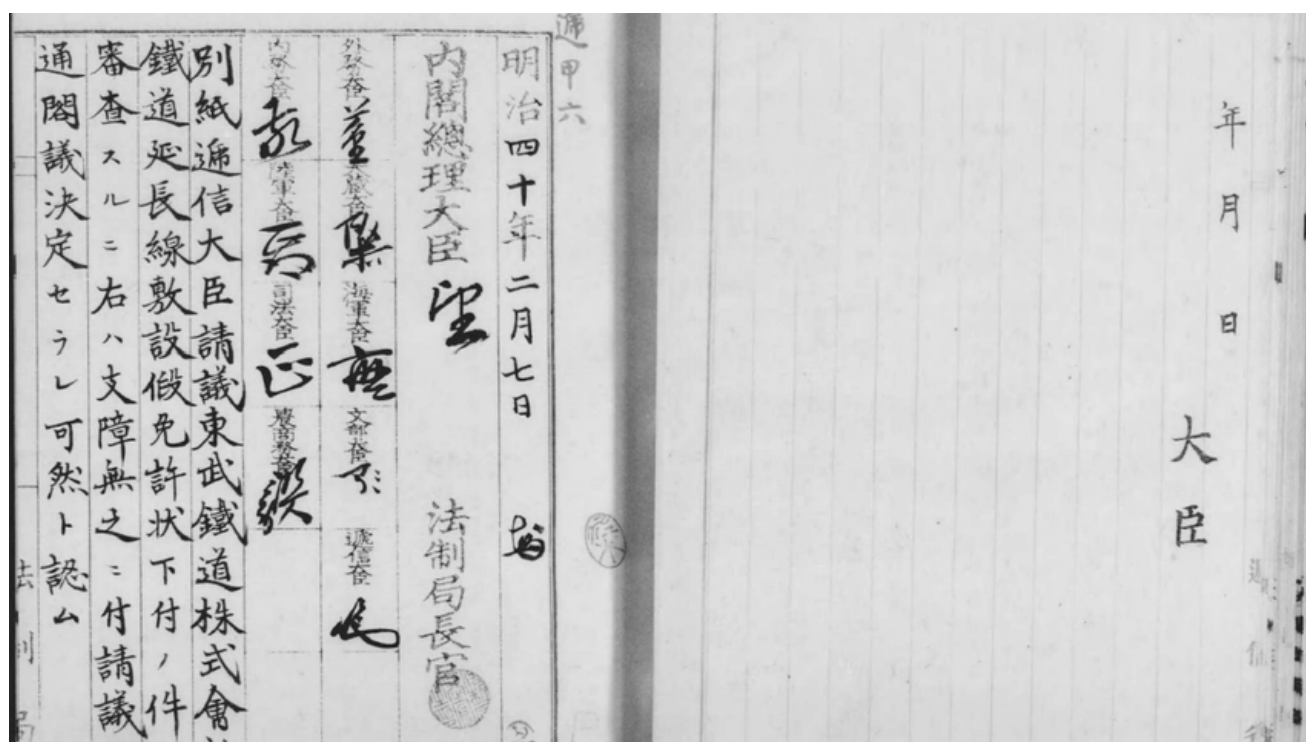 年 月 日
大臣
遞甲六
明治四十年二月七日
内閣總理大臣 望 法制局長官
外務大臣 董 大藏大臣 海軍大臣 文部大臣 遞信大臣
内務大臣 敬 陸軍大臣 司法大臣 正 農商務大臣
別紙遞信大臣請議東武鐵道株式會
鐵道延長線敷設假免許状下付ノ件
審査スルニ右ハ支障無之ニ付請議
通閣議決定セラレ可然ト認ム